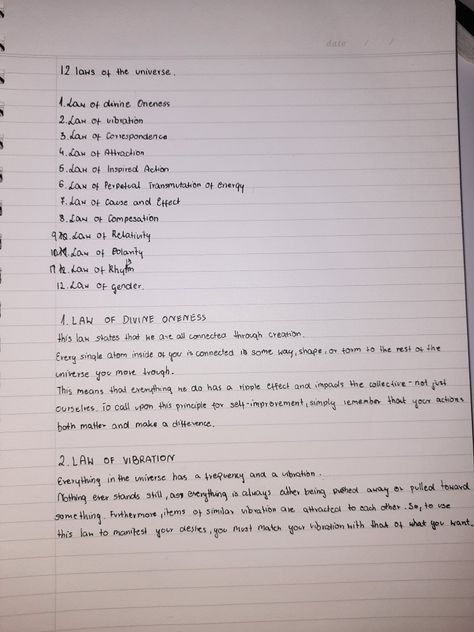 date / /
12 laws of the universe.
1. Law of divine Oneness
2. Law of vibration
3. Law of Correspondence
4. Law of Attraction
5. Law of Inspired Action
6. Law of Perpetual Transmutation of energy
7. Law of Cause and Effect
8. Law of Compesation
9. Law of Relativity
10. Law of Polarity
11. Law of Rhytm
12. Law of gender.
1. LAW OF DIVINE ONENESS
this law states that we are all connected through creation.
Every single atom inside of you is connected in some way, shape, or form to the rest of the
universe you move trough.
This means that everything we do has a ripple effect and impacts the collective - not just
ourselves. To call upon this principle for self-improvement, simply remember that your actions
both matter and make a difference.
2. LAW OF VIBRATION
Everything in the universe has a frequency and a vibration.
Nothing ever stands still, as everything is always either being pushed away or pulled toward
something. Furthermore, items of similar vibration are attracted to each other. So, to use
this law to manifest your desires, you must match your vibration with that of what you want.